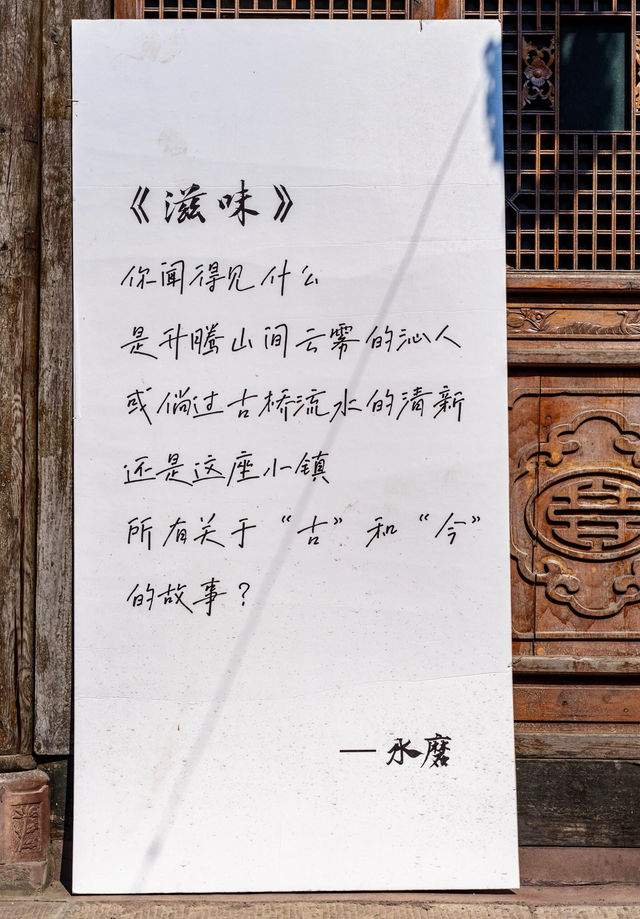 《滋味》
你闻得见什么
是升腾山间云雾的沁人
或倘过古桥流水的清新
还是这座小镇
所有关于“古”和“今”
的故事？
— 永磨